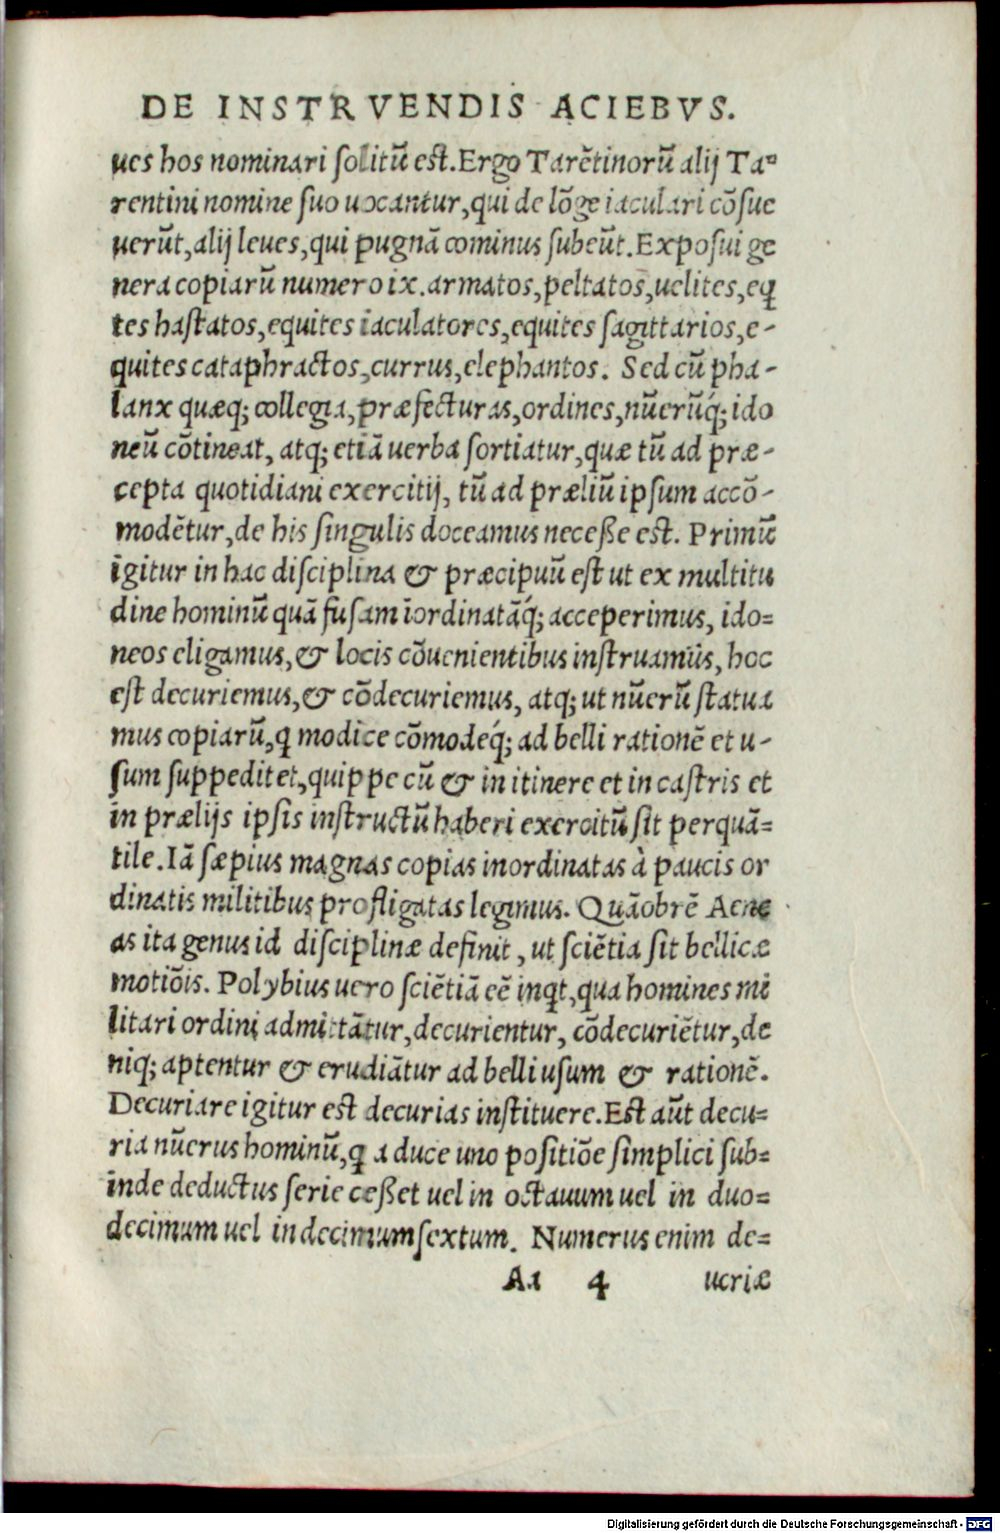 DE INSTRVENDIS ACIEBVS.
ues hos nominari ſolitū est.Ergo Tarētinorū alij Ta-
rentini nomine ſuo uocantur,qui de lōge iaculari cōſue
uerūt,alij leues,qui pugnā cominus ſubeūt.Expoſui ge
nera copiarū numero ix.armatos,peltatos,uelites,eq̄
tes haſtatos,equites iaculatores,equites ſagittarios,e-
quites cataphractos,currus,elephantos. Sed cū pha-
lanx quæq; collegia,præfecturas,ordines,nūerūq́; ido
neū cōtineat, atq; etiā uerba ſortiatur,quæ tū ad præ-
cepta quotidiani exercitij, tū ad præliū ipſum accō-
modētur,de his ſingulis doceamus neceße est. Primū
igitur in hac diſciplina & præcipuū eſt ut ex multitu
dine hominū quā fuſam īordinatāq́; acceperimus, ido=
neos eligamus,& locis cōuenientibus inſtruamus, hoc
eſt decuriemus,& cōdecuriemus, atq; ut nūerū ſtatua
mus copiarū,q modice cōmodeq́; ad belli rationē et u-
ſum ſuppeditet,quippe cū & in itinere et in caſtris et
in prælijs ipſis inſtructū haberi exercitū ſit perquā=
tile.Iā ſæpius magnas copias inordinatas à paucis or
dinatis militibus profligatas legimus. Quāobrē Aene
as ita genus id diſciplinæ definit, ut ſciētia ſit bellicæ
motiōis. Polybius uero ſciētiā eē inqt,qua homines mi
litari ordini admittātur,decurientur, cōdecuriētur,de
niq; aptentur & erudiātur ad belli uſum & rationē.
Decuriare igitur eſt decurias inſtituere.Eſt aūt decu=
ria nūerus hominū,q a duce uno poſitiōe ſimplici ſub=
inde deductus ſerie ceßet uel in octauum uel in duo=
decimum uel in decimumſextum. Numerus enim de=
Aa 4 ucriæ
Digitalisierung gefördert durch die Deutsche Forschungsgemeinschaft - DFG